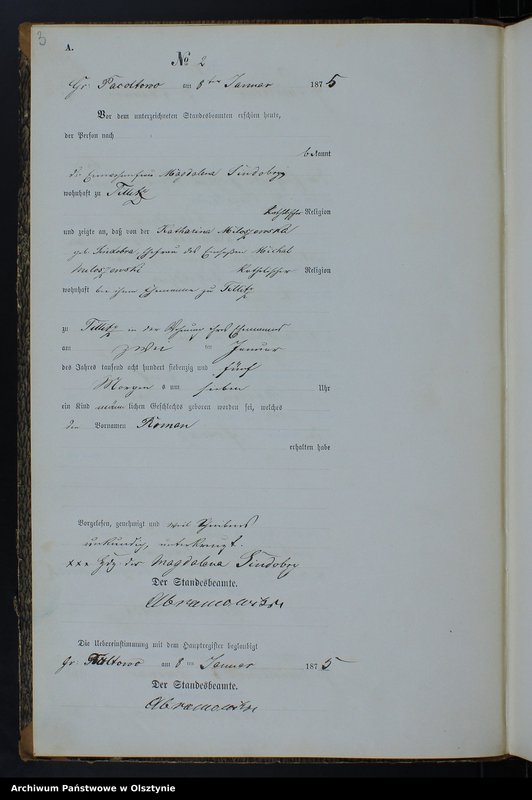 3
A.
№ 2
Gr. Pacoltowo am 8ten Januar 1875
Vor dem unterzeichneten Standesbeamten erschien heute,
der Person nach
bekannt
die Magdalena Sindobry
wohnhaft zu Tillitz
katholischer Religion
und zeigte an, daß von der Katharina Miloszewska
geb. Ehefrau des Einsaßen Michal
Miloszewski katholischer Religion
wohnhaft bei ihrem Ehemanne zu Tillitz
zu Tillitz in der Wohnung ihres Ehemannes
am zwei ten Januar
des Jahres tausend acht hundert siebenzig und fünf
Morgens um sieben Uhr
ein Kind männlichen Geschlechts geboren worden sei, welches
den Vornamen Roman
erhalten habe
Vorgelesen, genehmigt und weil Schreibens
unkundig, unterkreuzt.
xxx Hdz der Magdalena Sindobry
Der Standesbeamte.
Abramowski
Die Uebereinstimmung mit dem Hauptregister beglaubigt
Gr. am 8ten Januar 1875
Der Standesbeamte.
Abramowski
Archiwum Państwowe w Olsztynie